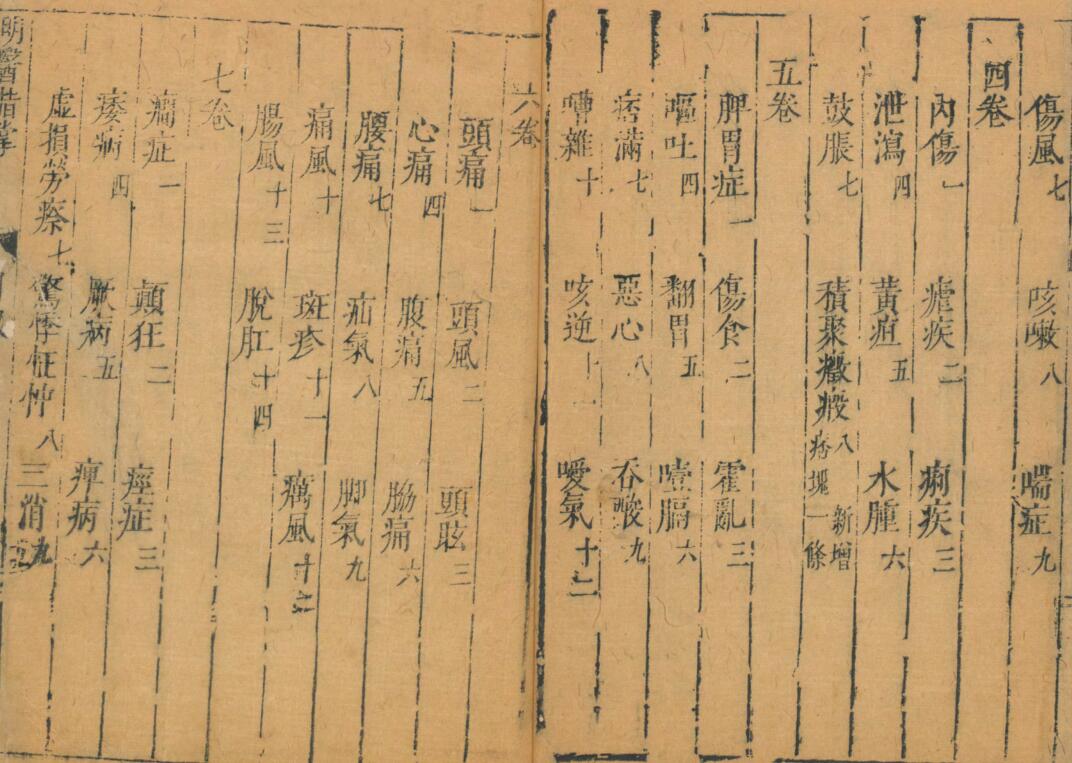 傷風七 咳嗽八 喘症九
四卷
內傷一 瘧疾二 痢疾三
泄瀉四 黃疸五 水腫六
鼓脹七 積聚癥瘕八 新增痞塊一條
五卷
脾胃症一 傷食二 霍亂三
嘔吐四 翻胃五 噎膈六
痞滿七 惡心八 吞酸九
嘈雜十 咳逆十一 噯氣十二
六卷
頭痛一 頭風二 頭眩三
心痛四 腹痛五 脇痛六
腰痛七 疝氣八 脚氣九
痛風十 斑疹十一 癘風十二
腸風十三 脫肛十四
七卷
癎症一 顛狂二 痙症三
痿病四 厥病五 痺病六
虛損勞瘵七 驚悸怔忡八 三消九
明醫指掌